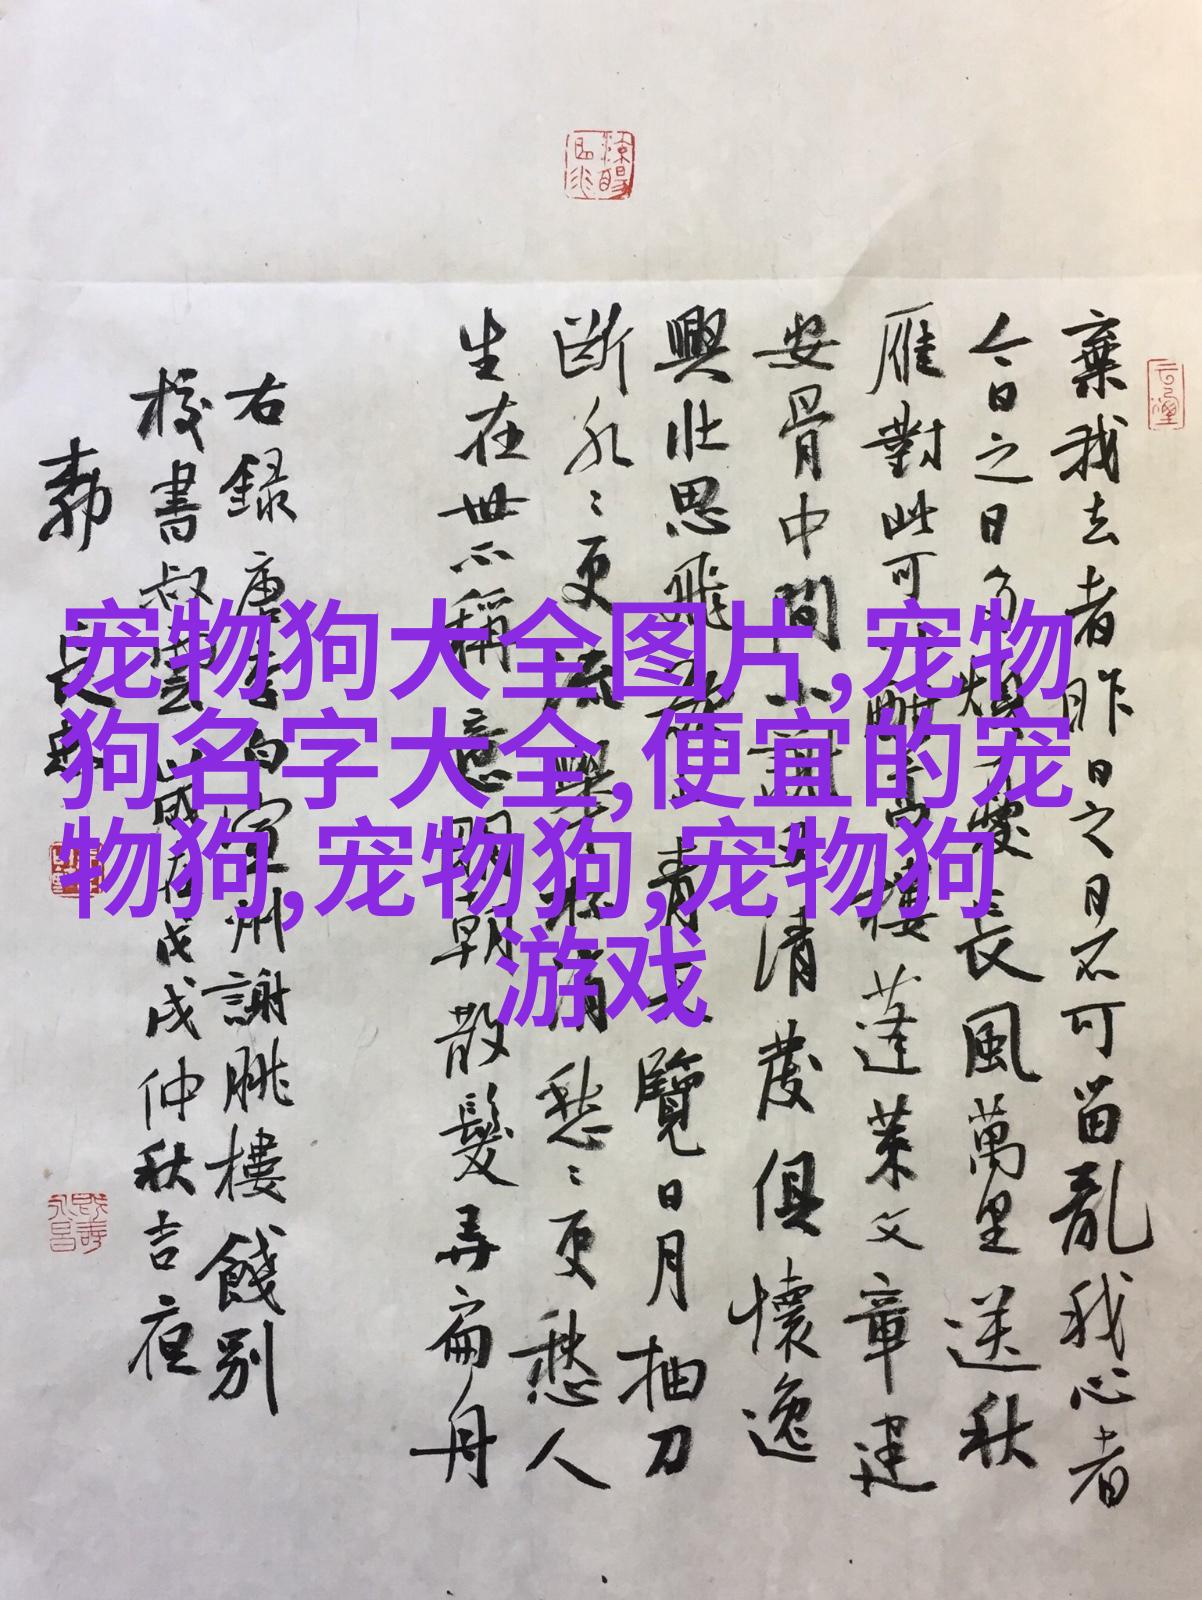 宠物狗大全图片,宠物
狗名字大全,便宜的宠
物狗,宠物狗,宠物狗
游戏
棄我去者昨日之日不可留亂我心者
今日之日多煩憂長風萬里送秋
雁對此可以酣高樓蓬萊文章建
安骨中間小謝又清發俱懷逸
興壯思飛欲上青天覽日月抽刀
斷水〻更流舉杯消愁〻更愁人
生在世不稱意明朝散髮弄扁舟
右録唐李白宣州謝朓樓餞別
校書叔雲歲在戊戌仲秋吉夜